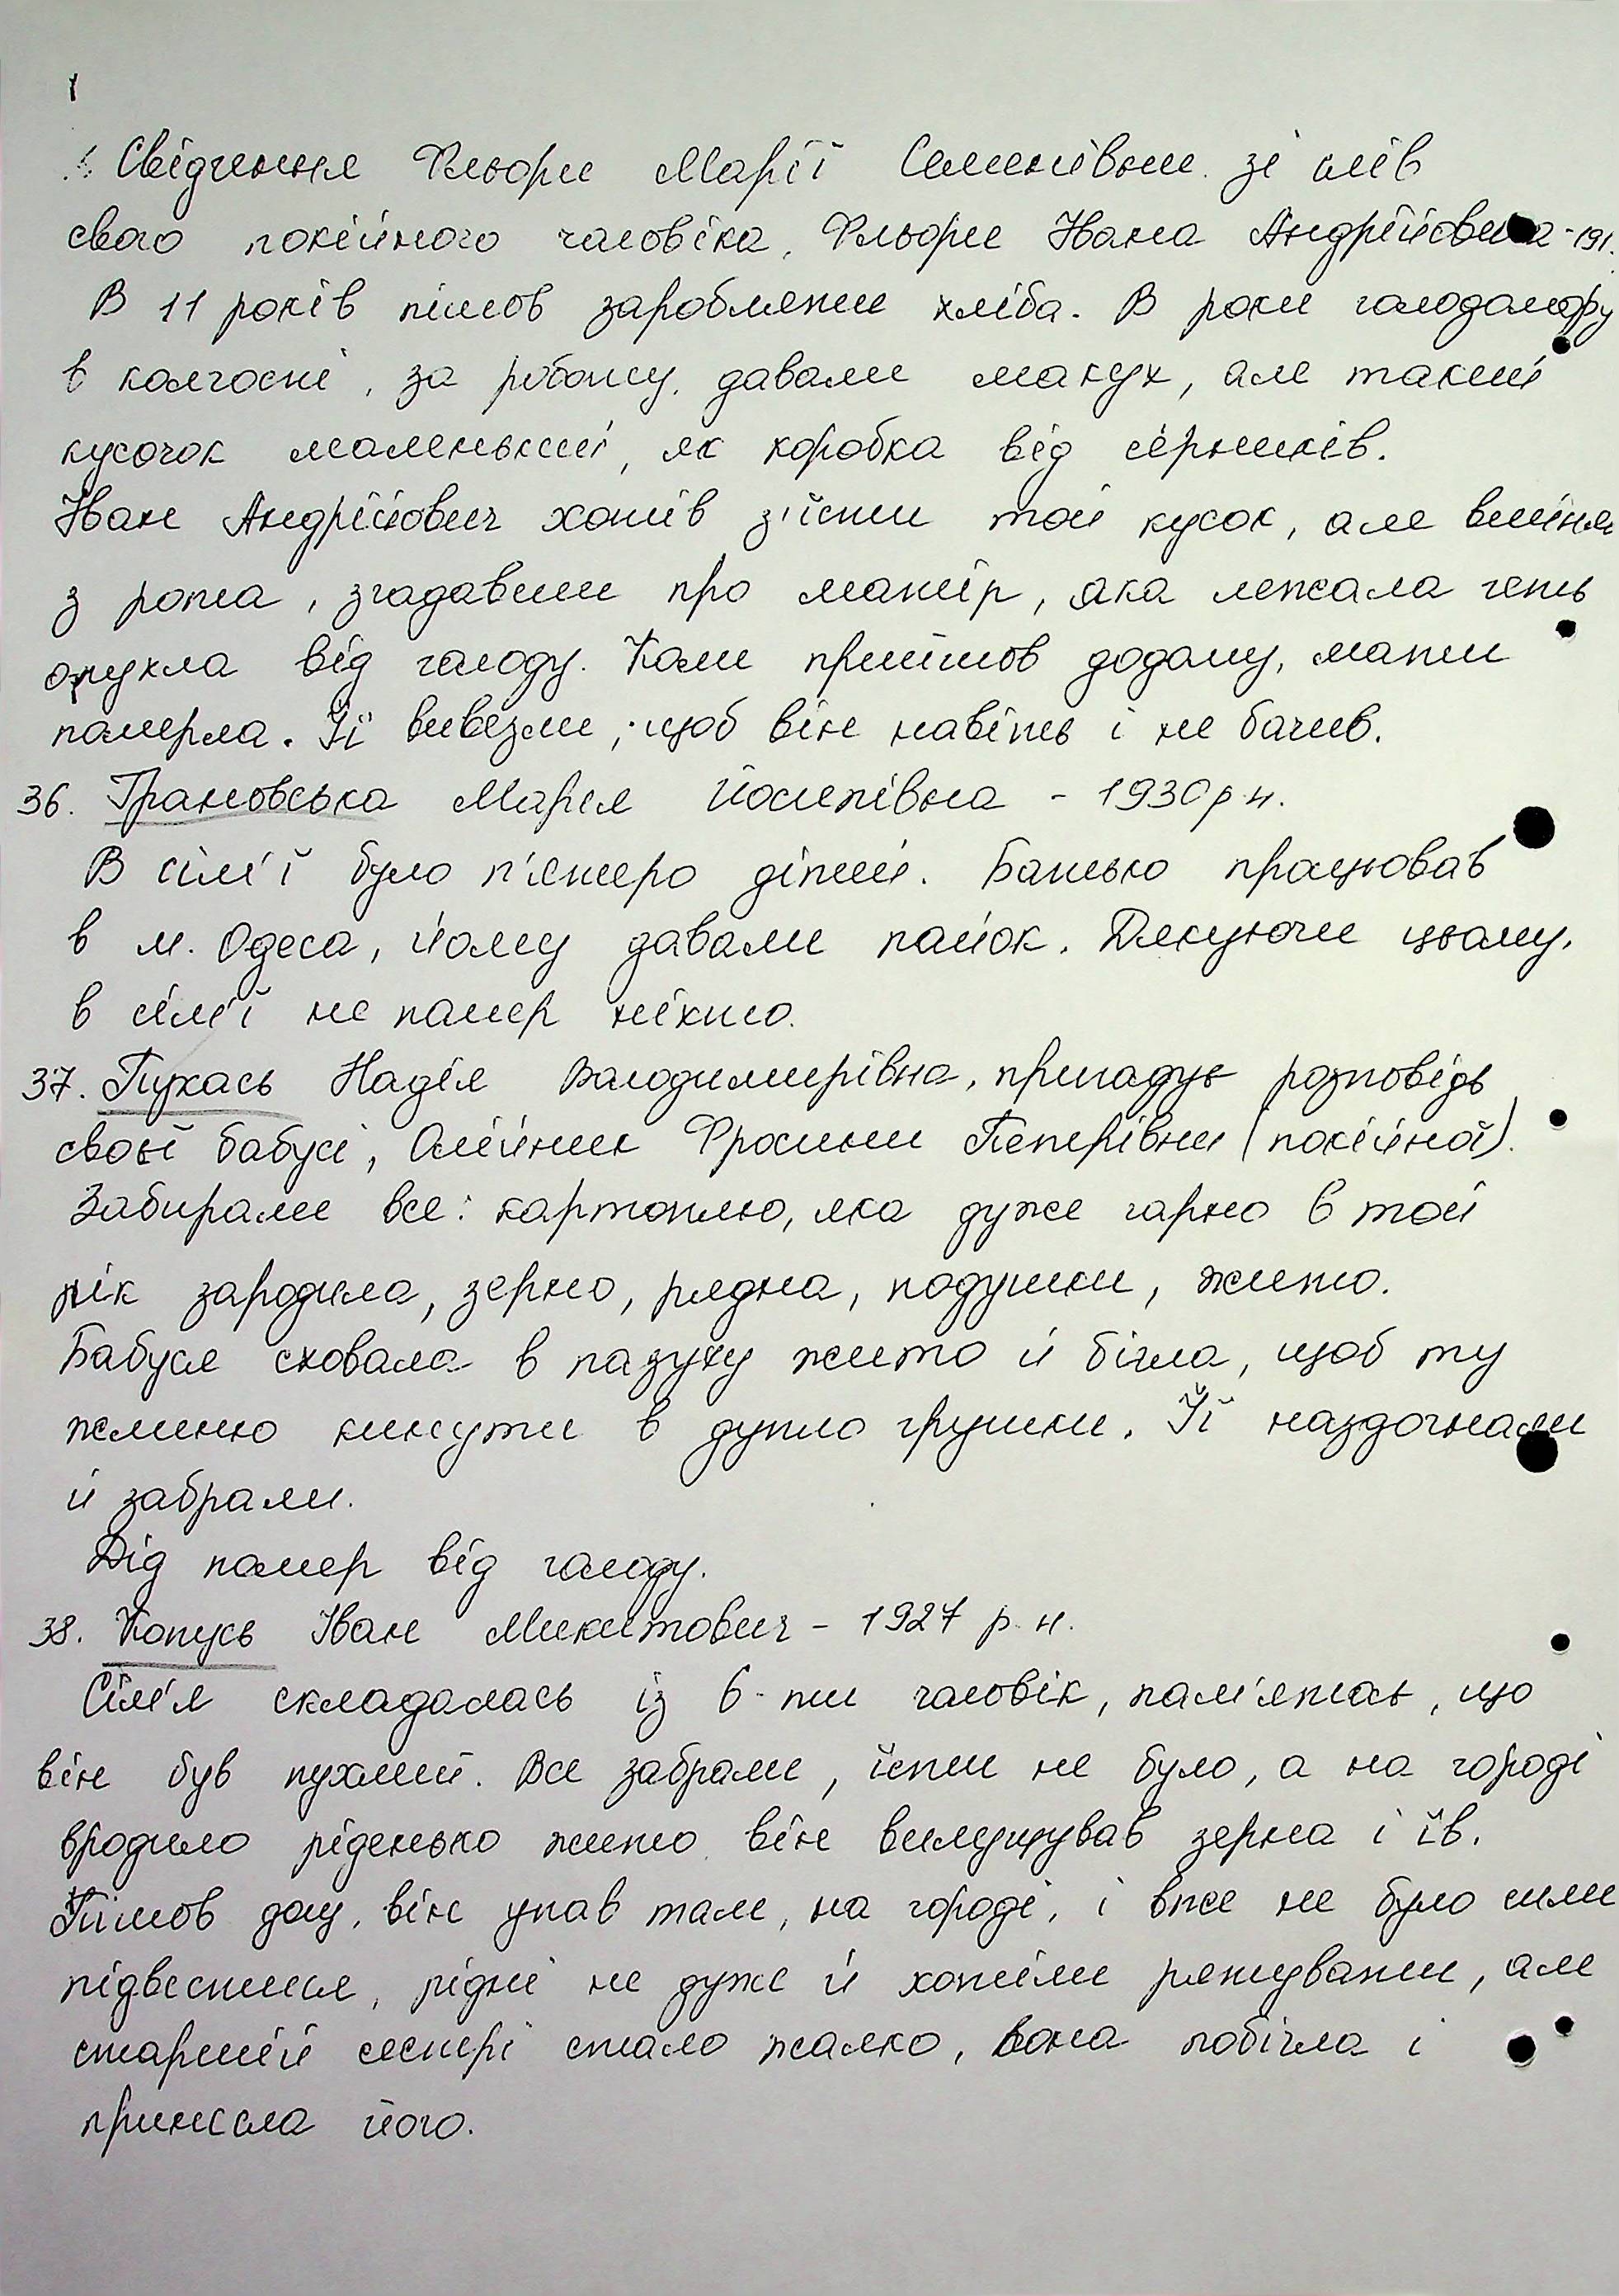 Свідчення Фльори Марії Семенівни зі слів
свого покійного чоловіка, Фльори Івана Андрійовича - 191
В 11 років пішов заробляти хліба. В роки голодомору
в колгоспі, за роботу, давали макух, але такий
кусочок маленький, як коробка від сірників.
Іван Андрійович хотів з'їсти той кусок, але вийняв
з рота, згадавши про матір, яка лежала геть
опухла від голоду. Коли прийшов додому, мати
померла. Її вивезли, щоб він навіть і не бачив.
36. Грановська Марія Йосипівна - 1930 р.н.
В сім'ї було п'ятеро дітей. Батько працював
в м. Одеса, йому давали пайок. Дякуючи цьому,
в сім'ї не помер ніхто.
37. Пукась Надія Володимирівна, пригадує розповідь
своєї бабусі, Олійник Фросини Петрівни (покійної).
Забирали все: картоплю, яка дуже гарно в той
рік зародила, зерно, рядна, подушки, жито.
Бабуся сховала в пазуху жито й бігла, щоб ту
жменю кинути в дупло грушки. Її наздогнали
й забрали.
Дід помер від голоду.
38. Копусь Іван Микитович - 1927 р.н.
Сім'я складалась із 6-ти чоловік, пам'ятає, що
він був пухлий. Все забрали, їсти не було, а на городі
вродило ріденько жито він вилущував зерна і їв.
Пішов дощ, він упав там, на городі, і вже не було сили
підвестися, рідні не дуже й хотіли рятувати, але
старшій сестрі стало жалко, вона побігла і
принесла його.